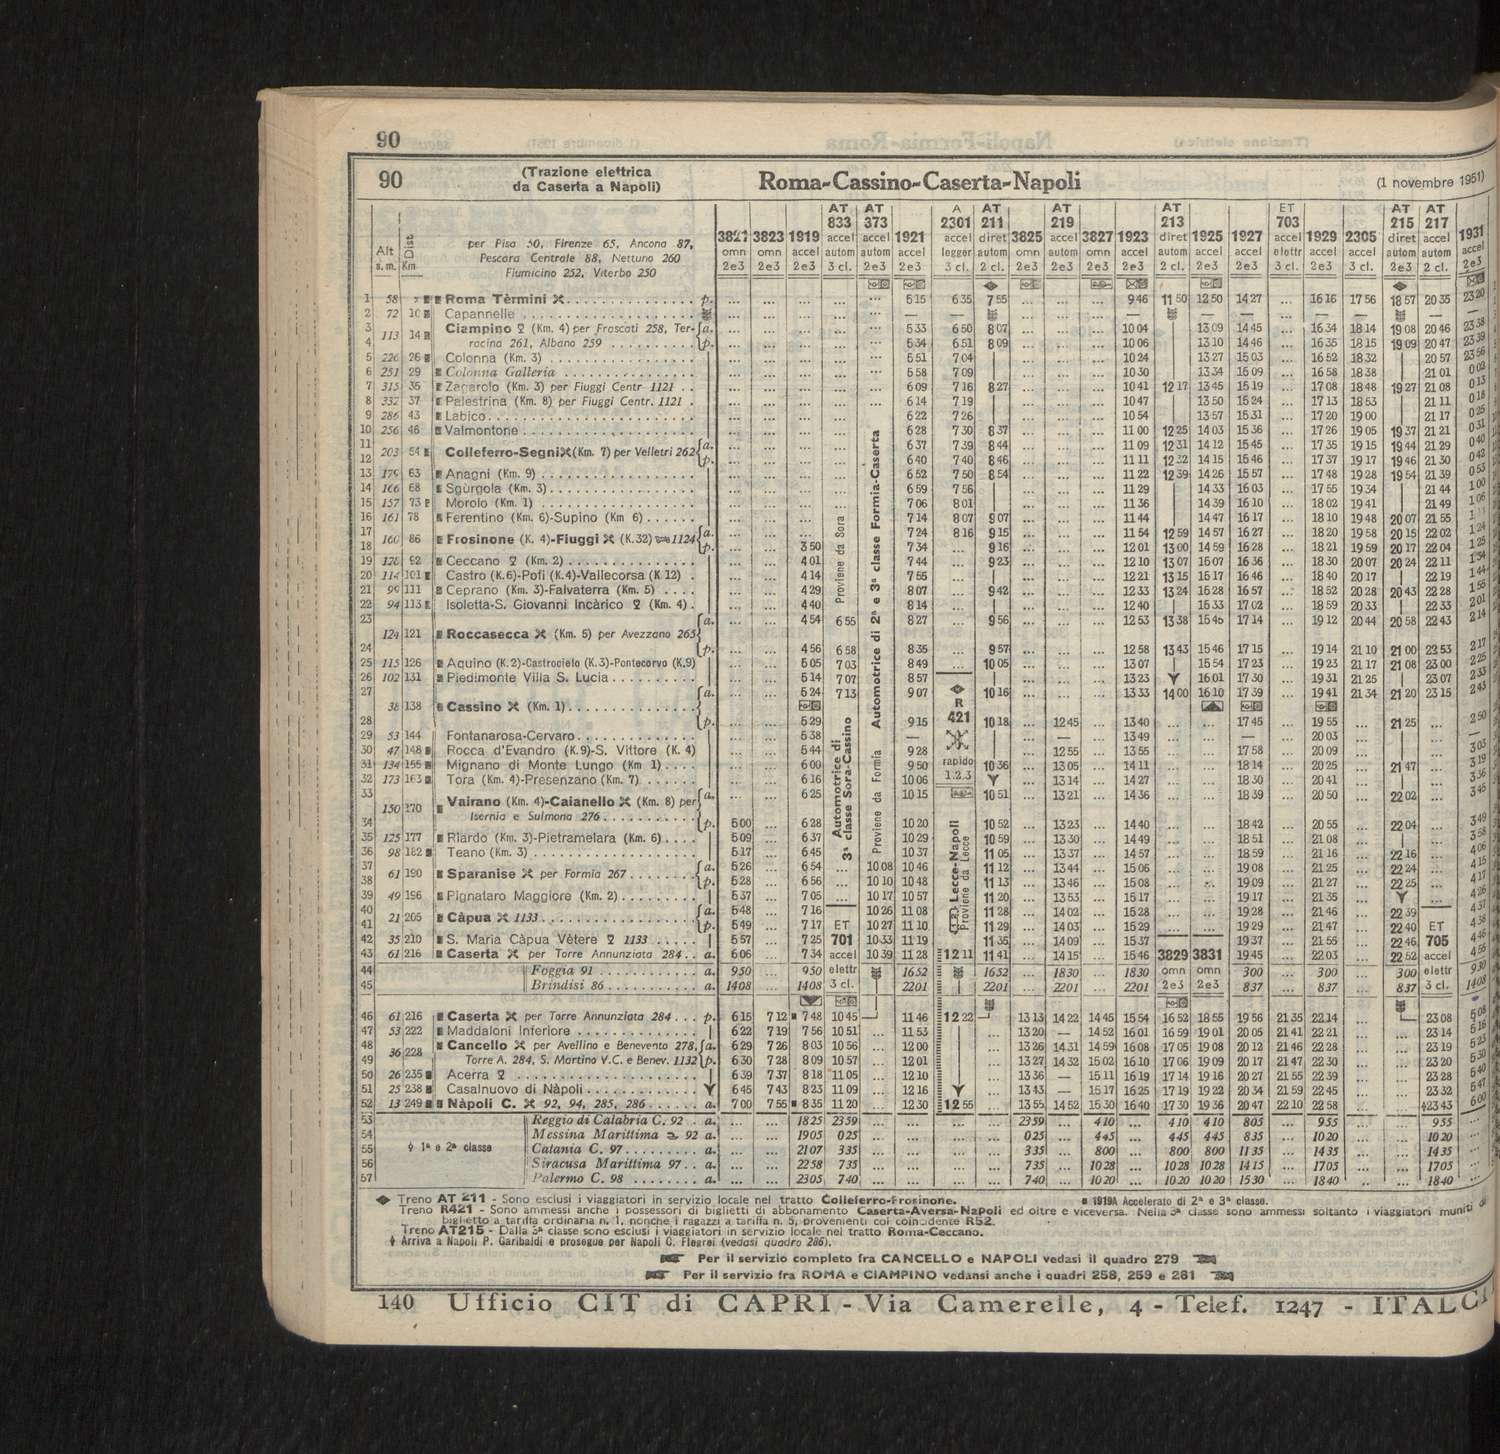 90
90
(Trazione elettrica
da Caserta a Napoli)
Roma-Cassino-Caserta-Napoli
(1 novembre 1951)
Alt s. m.
Dist Km
per Pisa 50, Firenze 65, Ancona 87,
Pescara Centrale 88, Nettuno 260
Fiumicino 252, Viterbo 250
3821 omn 2e3
3823 omn 2e3
1919 accel 2e3
AT 833 accel autom 3 cl.
AT 373 accel autom 2e3
1921 accel 2e3
A 2301 accel legger 3 cl.
AT 211 diret autom 2 cl.
3825 omn 2e3
AT 219 accel autom 2e3
3827 omn 2e3
1923 accel 2e3
AT 213 diret autom 2 cl.
1925 accel 2e3
1927 accel 2e3
ET 703 accel elettr 3 cl.
1929 accel 2e3
2305 accel 3 cl.
AT 215 diret autom 2e3
AT 217 accel autom 2 cl.
1931 accel 2e3
1 58 Roma Tèrmini p. ... ... ... ... ... 6 15 6 35 7 55 ... ... ... 9 46 11 50 12 50 14 27 ... 16 16 17 56 18 57 20 35 23 20
2 72 10 Capannelle
3 113 14 Ciampino (Km. 4) per Frascati 258, Ter- a. ... 6 33 6 50 8 07 ... 10 04 13 09 14 45 ... 16 34 18 14 19 08 20 46 23 38
4 racina 261, Albano 259 p. ... 6 34 6 51 8 09 ... 10 06 13 10 14 46 ... 16 35 18 15 19 09 20 47 23 39
5 226 26 Colonna (Km. 3) 6 51 7 04 10 24 13 27 15 03 ... 16 52 18 32 20 57 23 56
6 251 29 Colonna Galleria 6 58 7 09 10 30 13 34 15 09 ... 16 58 18 38 21 01 0 02
7 315 35 Zagarolo (Km. 3) per Fiuggi Centr 1121 6 09 7 16 8 27 10 41 12 17 13 45 15 19 ... 17 08 18 48 19 27 21 08 0 13
8 332 37 Palestrina (Km. 8) per Fiuggi Centr. 1121 6 14 7 19 10 47 13 50 15 24 ... 17 13 18 53 21 11 0 18
9 286 43 Labico 6 22 7 26 10 54 13 57 15 31 ... 17 20 19 00 21 17 0 25
10 256 46 Valmontone 6 28 7 30 8 37 11 00 12 25 14 03 15 36 ... 17 26 19 05 19 37 21 21 0 31
11 203 54 Colleferro-Segni (Km. 7) per Velletri 262 a. 6 37 7 39 8 44 11 09 12 31 14 12 15 45 ... 17 35 19 15 19 44 21 29 0 40
12 p. 6 40 7 40 8 46 11 11 12 32 14 15 15 46 ... 17 37 19 17 19 46 21 30 0 42
13 179 63 Anagni (Km. 9) 6 52 7 50 8 54 11 22 12 39 14 26 15 57 ... 17 48 19 28 19 54 21 39 0 53
14 166 68 Sgùrgola (Km. 3) 6 59 7 56 11 29 14 33 16 03 ... 17 55 19 34 21 44 1 00
15 157 73 Morolo (Km. 1) 7 06 8 01 11 36 14 39 16 10 ... 18 02 19 41 21 49 1 06
16 161 78 Ferentino (Km. 6)-Supino (Km 6) 7 14 8 07 9 07 11 44 14 47 16 17 ... 18 10 19 48 20 07 21 55
17 160 86 Frosinone (K. 4)-Fiuggi (K.32) 1124 a. 7 24 8 16 9 15 11 54 12 59 14 57 16 27 ... 18 20 19 58 20 15 22 02 1 24
18 p. 3 50 7 34 ... 9 16 12 01 13 00 14 59 16 28 ... 18 21 19 59 20 17 22 04 1 25
19 128 92 Ceccano (K. 2) 4 01 7 44 ... 9 23 12 10 13 07 15 07 16 36 ... 18 30 20 07 20 24 22 11 1 34
20 114 101 Castro (K.6)-Pofi (K.4)-Vallecorsa (K 12) 4 14 7 55 12 21 13 15 15 17 16 46 ... 18 40 20 17 22 19 1 44
21 99 111 Ceprano (Km. 3)-Falvaterra (Km. 5) 4 29 8 07 ... 9 42 12 33 13 24 15 28 16 57 ... 18 52 20 28 20 43 22 28 1 55
22 94 113 Isoletta-S. Giovanni Incàrico (Km. 4) 4 40 8 14 12 40 15 33 17 02 ... 18 59 20 33 22 33 2 01
23 124 121 Roccasecca (Km. 5) per Avezzano 265 a. 4 54 6 55 8 27 ... 9 56 12 53 13 38 15 45 17 14 ... 19 12 20 44 20 58 22 43 2 14
24 p. 4 56 6 58 8 35 ... 9 57 12 58 13 43 15 46 17 15 ... 19 14 21 10 21 00 22 53 2 17
25 115 126 Aquino (K.2)-Castrocielo (K.3)-Pontecorvo (K.9) 5 05 7 03 8 49 ... 10 05 13 07 15 54 17 23 ... 19 23 21 17 21 08 23 00 2 25
26 102 131 Piedimonte Villa S. Lucia 5 14 7 07 8 57 13 23 16 01 17 30 ... 19 31 21 25 23 07 2 33
27 38 138 Cassino (Km. 1) a. 5 24 7 13 9 07 10 16 13 33 14 00 16 10 17 39 ... 19 41 21 34 21 20 23 15 2 43
28 p. 5 29 9 15 10 18 ... 12 45 ... 13 40 ... ... 17 45 ... 19 55 ... 21 25 ... 2 50
29 53 144 Fontanarosa-Cervaro 5 38 — 13 49 — 20 03
30 47 148 Rocca d'Evandro (K.9)-S. Vittore (K. 4) 5 44 9 28 12 55 13 55 17 58 20 09 3 03
31 134 155 Mignano di Monte Lungo (Km 1) 6 00 9 50 10 36 13 05 14 11 18 14 20 25 21 47 3 19
32 173 163 Tora (Km. 4)-Presenzano (Km. 7) 6 16 10 06 13 14 14 27 18 30 20 41 3 36
33 150 170 Vairano (Km. 4)-Caianello (Km. 8) per a. 6 25 10 15 10 51 13 21 14 36 18 39 20 50 22 02 3 45
34 Isernia e Sulmona 276 p. 5 00 6 28 10 20 10 52 13 23 14 40 18 42 20 55 22 04 3 49
35 125 177 Riardo (Km. 3)-Pietramelara (Km. 6) 5 09 6 37 10 29 10 59 13 30 14 49 18 51 21 08 3 58
36 98 182 Teano (Km. 3) 5 17 6 45 10 37 11 05 13 37 14 57 18 59 21 16 22 16 4 06
37 61 190 Sparanise per Formia 267 a. 5 26 6 54 ... 10 08 10 46 11 12 13 44 15 06 19 08 21 25 22 24 4 15
38 p. 5 28 6 56 ... 10 10 10 48 11 13 13 46 15 08 19 09 21 27 22 25 4 17
39 49 196 Pignataro Maggiore (Km. 2) 5 37 7 05 ... 10 17 10 57 11 20 13 53 15 17 19 17 21 35 4 26
40 21 205 Càpua 1133 a. 5 48 7 16 10 26 11 08 11 28 14 02 15 28 19 28 21 46 22 39 4 37
41 p. 5 49 7 17 10 27 11 10 11 29 14 03 15 29 19 29 21 47 22 40 4 38
42 35 210 S. Maria Càpua Vètere 1133 5 57 7 25 10 33 11 19 11 35 14 09 15 37 19 37 21 55 22 46 4 46
43 61 216 Caserta per Torre Annunziata 284 a. 6 06 7 34 10 39 11 28 12 11 11 41 14 15 15 46 19 45 22 03 22 52 4 55
44 Foggia 91 a. 9 50 ... 9 50 16 52 16 52 ... 18 30 ... 18 30 3 00 ... 3 00 ... 3 00 9 30
45 Brindisi 86 a. 14 08 ... 14 08 22 01 22 01 ... 22 01 ... 22 01 8 37 ... 8 37 ... 8 37 14 08
Proviene da Sora
Automotrice di
3ª classe Sora-Cassino
Automotrice di 2ª e 3ª classe Formia-Caserta
Proviene da Formia
R
421
rapido
1.2.3
Lecce-Napoli
Proviene da Lecce
ET
701
accel
elettr
3 cl.
3829 omn 2e3
3831 omn 2e3
ET
705
accel
elettr
3 cl.
46 61 216 Caserta per Torre Annunziata 284 p. 6 15 7 12 7 48 10 45 11 46 12 22 13 13 14 22 14 45 15 54 16 52 18 55 19 56 21 35 22 14 ... 23 08 5 08
47 53 222 Maddaloni Inferiore 6 22 7 19 7 56 10 51 ... 11 53 ... 13 20 — 14 52 16 01 16 59 19 01 20 05 21 41 22 21 ... 23 14 5 15
48 36 228 Cancello per Avellino e Benevento 278, a. 6 29 7 26 8 03 10 56 ... 12 00 ... 13 26 14 31 14 59 16 08 17 05 19 08 20 12 21 46 22 28 ... 23 19 5 23
49 Torre A. 284, S. Martino V.C. e Benev. 1132 p. 6 30 7 28 8 09 10 57 ... 12 01 ... 13 27 14 32 15 02 16 10 17 06 19 09 20 17 21 47 22 30 ... 23 20 5 30
50 26 235 Acerra 6 39 7 37 8 18 11 05 ... 12 10 ... 13 36 — 15 11 16 19 17 14 19 16 20 27 21 55 22 39 ... 23 28 5 40
51 25 238 Casalnuovo di Nàpoli 6 45 7 43 8 23 11 09 ... 12 16 ... 13 43 15 17 16 25 17 19 19 22 20 34 21 59 22 45 ... 23 32 5 47
52 13 249 Nàpoli C. 92, 94, 285, 286 a. 7 00 7 55 8 35 11 20 ... 12 30 12 55 ... 13 55 14 52 15 30 16 40 17 30 19 36 20 47 22 10 22 58 ... 23 43 6 00
53 Reggio di Calabria C. 92 a. 18 25 23 59 23 59 ... 4 10 ... 4 10 4 10 8 05 ... 9 55 ... 9 55
54 Messina Marittima 92 a. 19 05 0 25 0 25 ... 4 45 ... 4 45 4 45 8 35 ... 10 20 ... 10 20
55 1ª e 2ª classe Catania C. 97 a. 21 07 3 35 3 35 ... 8 00 ... 8 00 8 00 11 35 ... 14 35 ... 14 35
56 Siracusa Marittima 97 a. 22 58 7 35 7 35 ... 10 28 ... 10 28 10 28 14 15 ... 17 05 ... 17 05
57 Palermo C. 98 a. 23 05 7 40 7 40 ... 10 20 ... 10 20 10 20 15 30 ... 18 40 ... 18 40
Treno AT 211 - Sono esclusi i viaggiatori in servizio locale nel tratto Colleferro-Frosinone. 1919A Accelerato di 2ª e 3ª classe.
Treno R421 - Sono ammessi anche i possessori di biglietti di abbonamento Caserta-Aversa-Napoli ed oltre e viceversa. Nella 3ª classe sono ammessi soltanto i viaggiatori muniti di
biglietto a tariffa ordinaria n. 1, nonchè i ragazzi a tariffa n. 5, provenienti coi coincidente R52.
Treno AT215 - Dalla 3ª classe sono esclusi i viaggiatori in servizio locale nel tratto Roma-Ceccano.
Arriva a Napoli P. Garibaldi e prosegue per Napoli C. Flegrei (vedasi quadro 286).
Per il servizio completo fra CANCELLO e NAPOLI vedasi il quadro 279
Per il servizio fra ROMA e CIAMPINO vedansi anche i quadri 258, 259 e 261
140 Ufficio CIT di CAPRI - Via Camerelle, 4 - Telef. 1247 - ITALCIT